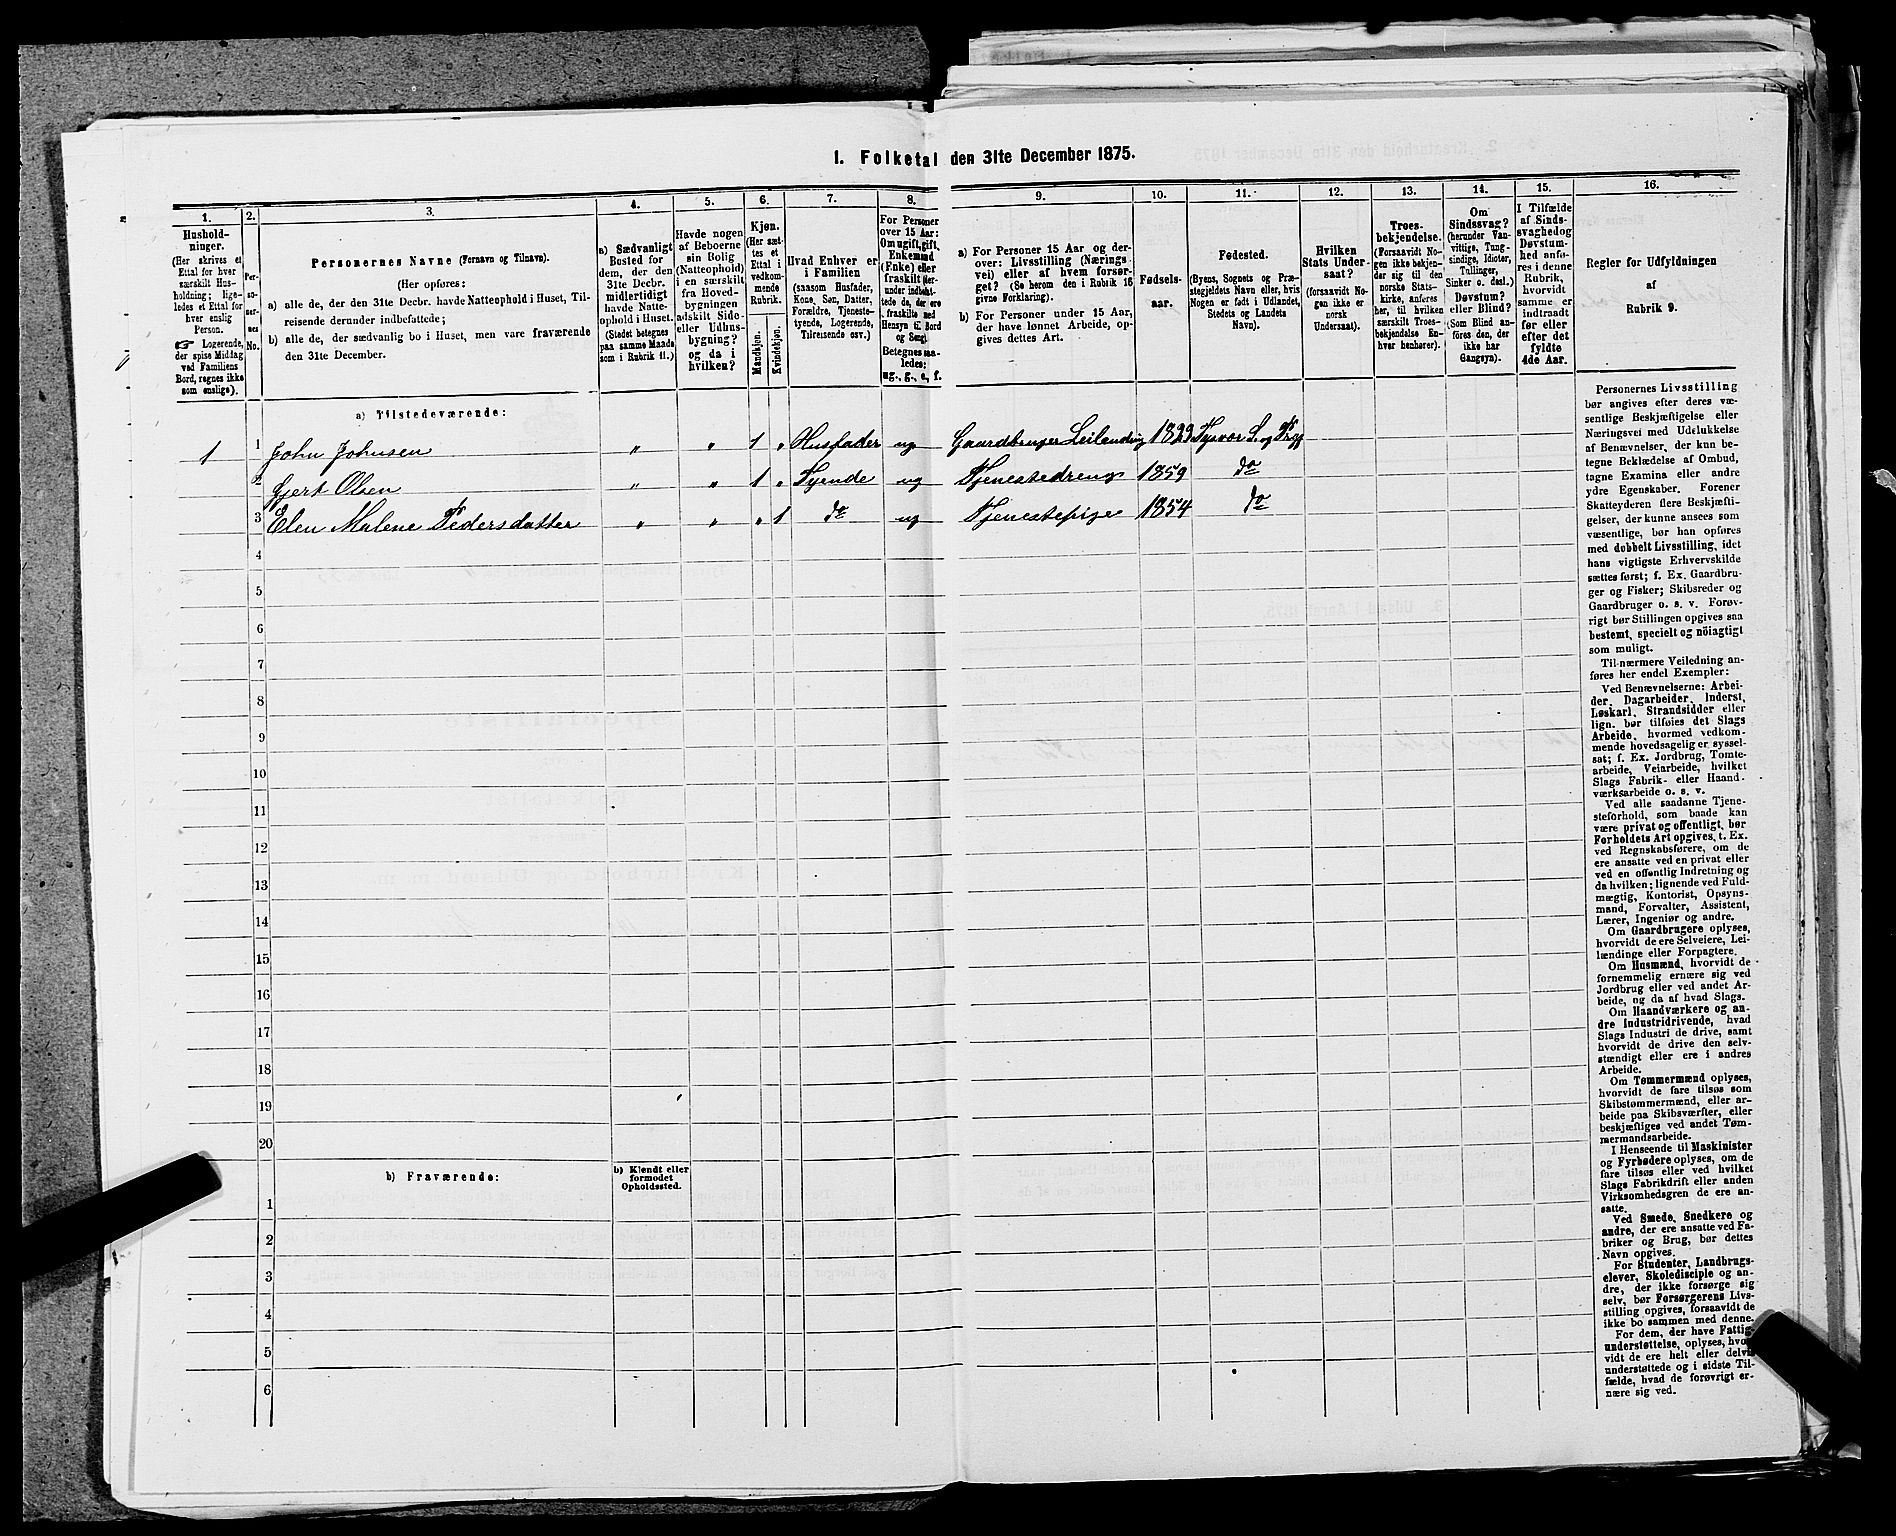 1. Folketal den 31te December 1875.
1.
2.
3.
4.
5.
6.
7.
8.
9.
10.
11.
12.
13.
14.
15.
16.
Hushold-
ninger.
(Her skrives et
Ettal for hver
særskilt Hus-
holdning; lige-
ledes et Ettal for
hver enslig
Person.
☞ Logerende,
der spise Middag
ved Familiens
Bord, regnes ikke
som enslige).
Per-
soner-
nes
No.
Personernes Navne (Fornavn og Tilnavn).
(Her opføres:
a) alle de, der den 31te Decbr. havde Natteophold i Huset, Til-
reisende derunder indbefattede;
b) alle de, der sædvanlig bo i Huset, men vare fraværende
den 31te December.
a) Sædvanligt
Bosted for
dem, der den
31te Decbr.
midlertidigt
havde Natte-
ophold i Huset.
(Stedet betegnes
paa samme Maade
som i Rubrik 11.)
Havde nogen
af Beboerne
sin Bolig
(Natteophold)
i en særskilt
fra Hoved-
bygningen
adskilt Side-
eller Udhus-
bygning?
og da i
hvilken?
Kjøn.
(Her sæt-
tes et
Ettal i
vedkom-
mende
Rubrik.
Mandkjøn.
Kvindekjøn.
Hvad Enhver er
i Familien
(saasom Husfader,
Kone, Søn, Datter,
Forældre, Tjeneste-
tyende, Logerende,
Tilreisende osv.)
For Personer
over 15 Aar:
Om ugift, gift,
Enkemand
(Enke) eller
fraskilt
Betegnes saa-
ledes:
ug., g., e, f.
a) For Personer 15 Aar og der-
over: Livsstilling (Nærings-
vei) eller af hvem forsør-
get? (Se herom den i Rubrik 16
givne Forklaring).
b) For Personer under 15 Aar,
der have lønnet Arbeide, op-
gives dettes Art.
Fødsels-
aar.
Fødested.
(Byens, Sognets og Præ-
stegjeldets Navn eller, hvis
Nogen er født i Udlandet,
Stedets og Landets
Navn).
Hvilken
Stats Under-
saat?
(forsaavidt No-
gen ikke er
norsk
Undersaat).
Troes-
bekjendelse.
(Forsaavidt No-
gen ikke bekjen-
der sig til den
norske Stats-
kirke, anføres
her, til hvilken
særskilt Troes-
bekjendelse En-
hver henhører).
Om
Sindssvag?
(herunder Van-
vittige, Tung-
sindige, Idioter,
Tullinger,
Sinker o. desl.)
Døvstum?
eller Blind?
(Som Blind an-
føres den, der
ikke har
Gangsyn).
I Tilfælde
af Sinds-
svaghed og
Døvstum-
hed anfø-
res i denne
Rubrik,
hvorvidt
samme er
indtraadt
før eller
efter det
fyldte
4de Aar.
Regler for Udfyldningen
af
Rubrik 9.
a) Tilstedeværende:
1 1 John Johnsen " " 1 " Husfader ug Gaardbruger Leilending 1823 Tysvær S. og Prgj
2 Gjert Olsen " " 1 " Tyende ug Tjenestedreng 1859 do
3 Elen Malene Pedersdatter " " " 1 do ug Tjenestepige 1854 do
4
5
6
7
8
9
10
11
12
13
14
15
16
17
18
19
20
b) Fraværende:
b) Kjendt eller
formodet
Opholdssted.
1
2
3
4
5
6
Personernes Livsstilling
bør angives efter deres væ-
sentlige Beskjæftigelse eller
Næringsvei med Udelukkelse
af Benævnelser, der kun be-
tegne Beklædelse af Ombud,
tagne Examina eller andre
ydre Egenskaber. Forener
Skatteyderen flere Beskjæfti-
gelser, der kunne ansees som
væsentlige, bør han opføres
med dobbelt Livsstilling, idet
hans vigtigste Erhvervskilde
sættes først; f. Ex. Gaardbru-
ger og Fisker; Skibsreder og
Gaardbruger o. s. v. Forøv-
rigt bør Stillingen opgives saa
bestemt, specielt og nöiagtigt
som muligt.
Til nærmere Veiledning an-
føres her endel Exempler:
Ved Benævnelserne: Arbei-
der, Dagarbeider, Inderst,
Løskarl, Strandsidder eller
lign. bør tilføies det Slags
Arbeide, hvormed vedkom-
mende hovedsagelig er syssel-
sat; f. Ex. Jordbrug, Tomte-
arbeide, Veiarbeide, hvilket
Slags Fabrik- eller Haand-
værksarbeide o. s. v.
Ved alle saadanne Tjene-
steforhold, som baade kan
være privat og offentligt, bør
Forholdets Art opgives, t. Ex.
ved Regnskabsførere, om de
ere ansatte ved en privat eller
ved en offentlig Indretning og
da hvilken; lignende ved Fuld-
mægtig, Kontorist, Opsyns-
mand, Forvalter, Assistent,
Lærer, Ingeniør og andre.
Om Gaardbrugere oplyses,
hvorvidt de ere Selveiere, Lei-
lændinge eller Forpagtere.
Om Husmænd, hvorvidt de
fornemmelig ernære sig ved
Jordbrug eller ved andet Ar-
beide, og da af hvad Slags.
Om Haandværkere og an-
dre Industridrivende, hvad
Slags Industri de drive, samt
hvorvidt de drive den selv-
stændigt eller ere i andres
Arbeide.
Om Tømmermænd oplyses,
hvorvidt de fare tilsøs som
Skibstømmermænd, eller ar-
beide paa Skibsværfter, eller
beskjæftiges ved andet Tøm-
mermandsarbeide.
I Henseende til Maskinister
og Fyrbødere oplyses, om de
fare tilsøs eller ved hvilket
Slags Fabrikdrift eller anden
Virksomhedsgren de ere an-
satte.
Ved Smede, Snedkere og
andre, der ere ansatte ved Fa-
briker og Brug, bør dettes
Navn opgives.
For Studenter, Landbrugs-
elever, Skoledisciple og an-
dre, der ikke forsørge sig
selv, bør Forsørgerens Livs-
stilling opgives, forsaavidt de
ikke bo sammen med denne.
For dem, der have Fattig-
understøttelse, oplyses, hvor-
vidt de ere helt eller delvis
understøttede og i sidste Til-
fælde, hvad de forøvrigt er-
nære sig ved.